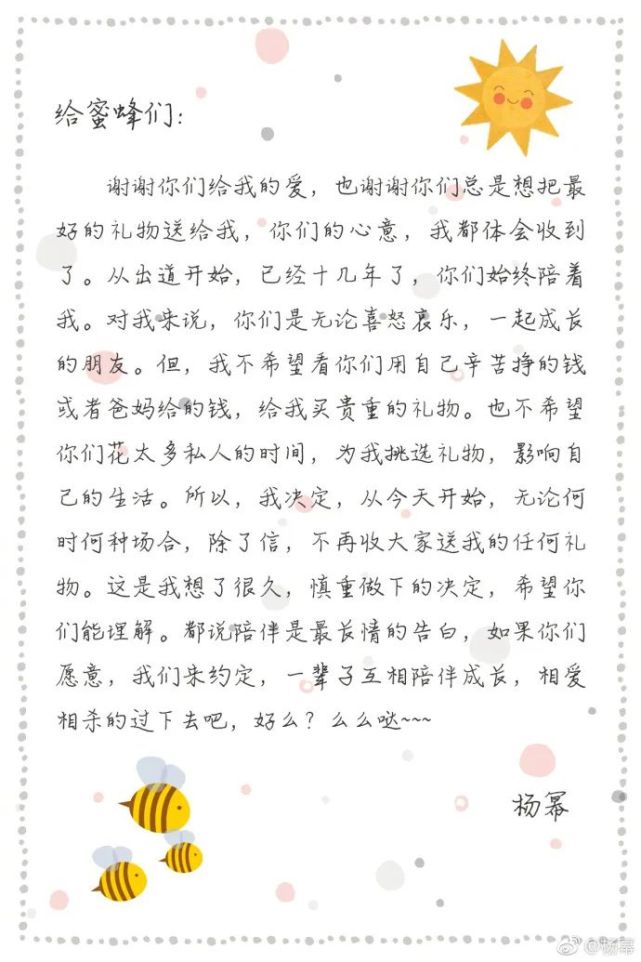 给蜜蜂们：
谢谢你们给我的爱，也谢谢你们总是想把最
好的礼物送给我，你们的心意，我都体会收到
了。从出道开始，已经十几年了，你们始终陪着
我。对我来说，你们是无论喜怒哀乐，一起成长
的朋友。但，我不希望看你们用自己辛苦挣的钱
或者爸妈给的钱，给我买贵重的礼物。也不希望
你们花太多私人的时间，为我挑选礼物，影响自
己的生活。所以，我决定，从今天开始，无论何
时何种场合，除了信，不再收大家送我的任何礼
物。这是我想了很久，慎重做下的决定，希望你
们能理解。都说陪伴是最长情的告白，如果你们
愿意，我们来约定，一辈子互相陪伴成长，相爱
相杀的过下去吧，好么？么么哒~~~
杨幂
@杨幂